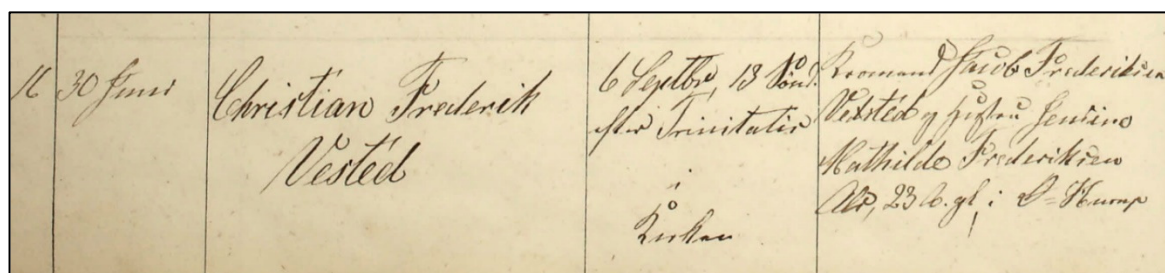 16
30 Juni
Christian Frederik
Vestéd
6 Septbr, 13 Sønd.
efter Trinitatis
i
Kirken
Kromand Jacob Frederiksen
Vestéd og Hustru Jensine
Mathilde Frederiksen
Als, 23 A. gl. i